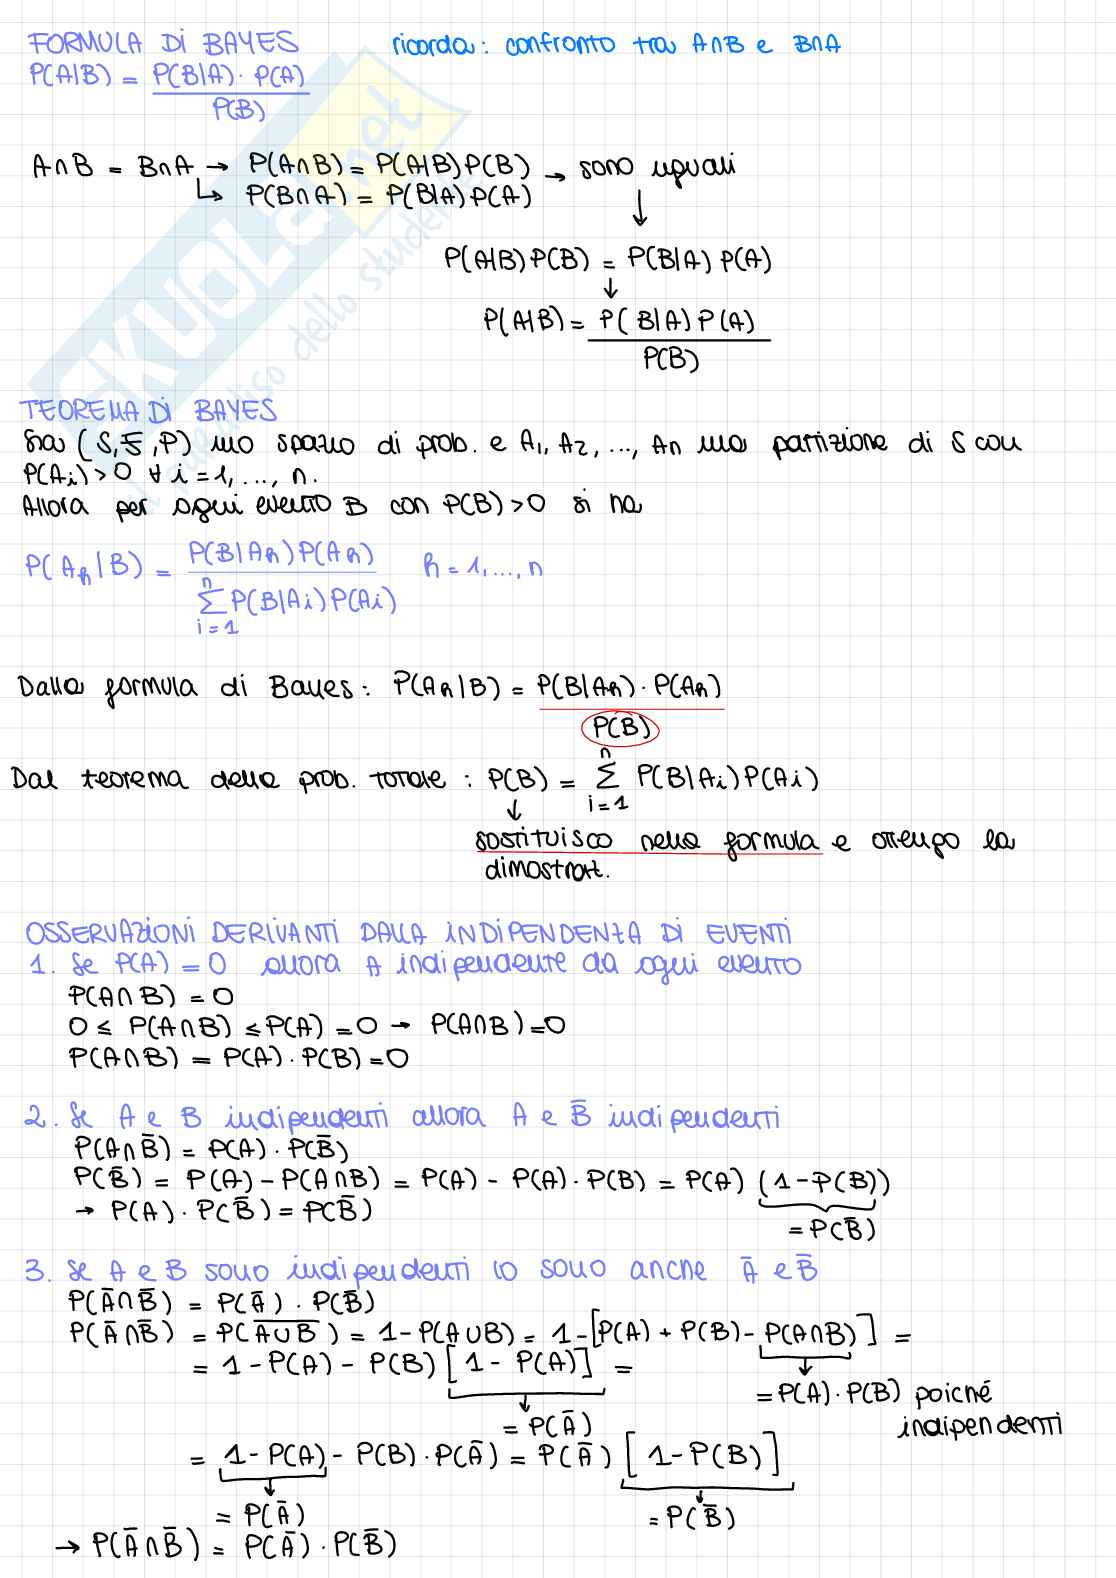 FORMULA DI BAYES
ricorda: confronto tra A∩B e B∩A
P(A|B) = P(B|A) · P(A)
P(B)
A∩B = B∩A → P(A∩B) = P(A|B)P(B) → sono uguali
↳ P(B∩A) = P(B|A)P(A)
↓
P(A|B)P(B) = P(B|A) P(A)
↓
P(A|B) = P(B|A) P(A)
P(B)
TEOREMA DI BAYES
Sia (S,F,P) uno spazio di prob. e A₁, A₂, ..., An una partizione di S con
P(Ai)>0 ∀ i=1,..., n.
Allora per ogni evento B con P(B)>0 si ha
P(Ah|B) = P(B|Ah)P(Ah) h = 1,...,n
n
∑ P(B|Ai)P(Ai)
i=1
Dalla formula di Bayes: P(Ah|B) = P(B|Ah) · P(Ah)
P(B)
n
Dal teorema della prob. totale : P(B) = ∑ P(B|Ai)P(Ai)
i=1
↓
sostituisco nella formula e ottengo la
dimostraz.
OSSERVAZIONI DERIVANTI DALLA INDIPENDENZA DI EVENTI
1. Se P(A) = 0 allora A indipendente da ogni evento
P(A∩B) = 0
0 ≤ P(A∩B) ≤ P(A) = 0 → P(A∩B) = 0
P(A∩B) = P(A) · P(B) = 0
2. Se A e B indipendenti allora A e B̄ indipendenti
P(A∩B̄) = P(A) · P(B̄)
P(B̄) = P(A) - P(A∩B) = P(A) - P(A) · P(B) = P(A) (1-P(B))
→ P(A) · P(B̄) = P(B̄)
= P(B̄)
3. Se A e B sono indipendenti lo sono anche Ā e B̄
P(Ā∩B̄) = P(Ā) · P(B̄)
P(Ā∩B̄) = P(A̅∪̅B̅) = 1-P(A∪B) = 1-[P(A) + P(B) - P(A∩B)] =
= 1 - P(A) - P(B) [1 - P(A)] =
= P(A) · P(B) poiché
indipendenti
= P(Ā)
= 1-P(A) - P(B) · P(Ā) = P(Ā) [1-P(B)]
= P(Ā)
= P(B̄)
→ P(Ā∩B̄) = P(Ā) · P(B̄)
SKUOLA.net
il paradiso dello studente